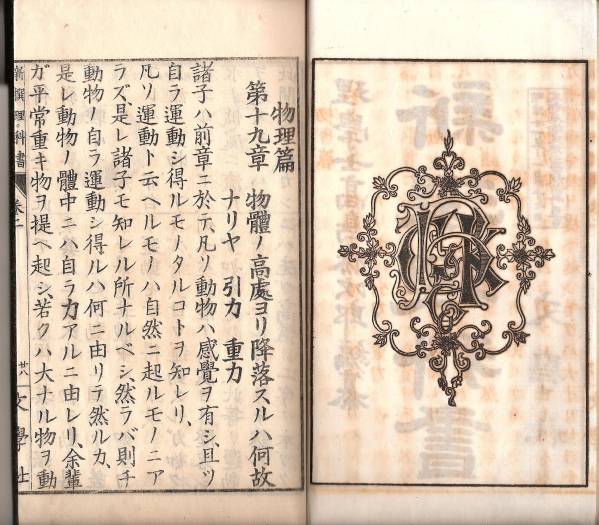 物理篇
第十九章　物體ノ高處ヨリ降落スルハ何故
ナリヤ　引力　重力
諸子ハ前章ニ於テ、凡ソ動物ハ感覺ヲ有シ、且ツ
自ラ運動シ得ルモノタルコトヲ知レリ、
凡ソ運動ト云ヘルモノハ自然ニ起ルモノニア
ラズ、是レ諸子モ知レル所ナルベシ、然ラバ則チ
動物ノ自ラ運動シ得ルハ何ニ由リテ然ルカ、
是レ動物ノ體中ニハ自ラ力アルニ由レリ、余輩
ガ平常重キ物ヲ提ヘ起シ、若クハ大ナル物ヲ動
新撰理科書
卷二
廿八
文學社